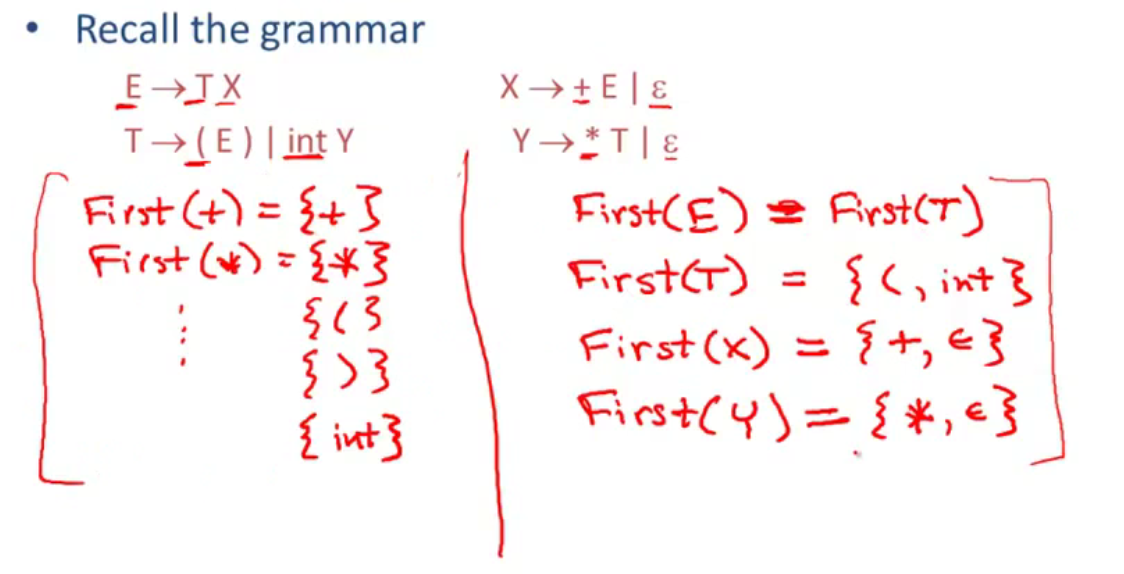 • Recall the grammar
E → T X
X → + E | ε
T → ( E ) | int Y
Y → * T | ε
First(+) = {+}
First(*) = {*}
⋮ {(}
{)}
{int}
First(E) = First(T)
First(T) = {(, int}
First(X) = {+, ε}
First(Y) = {*, ε}